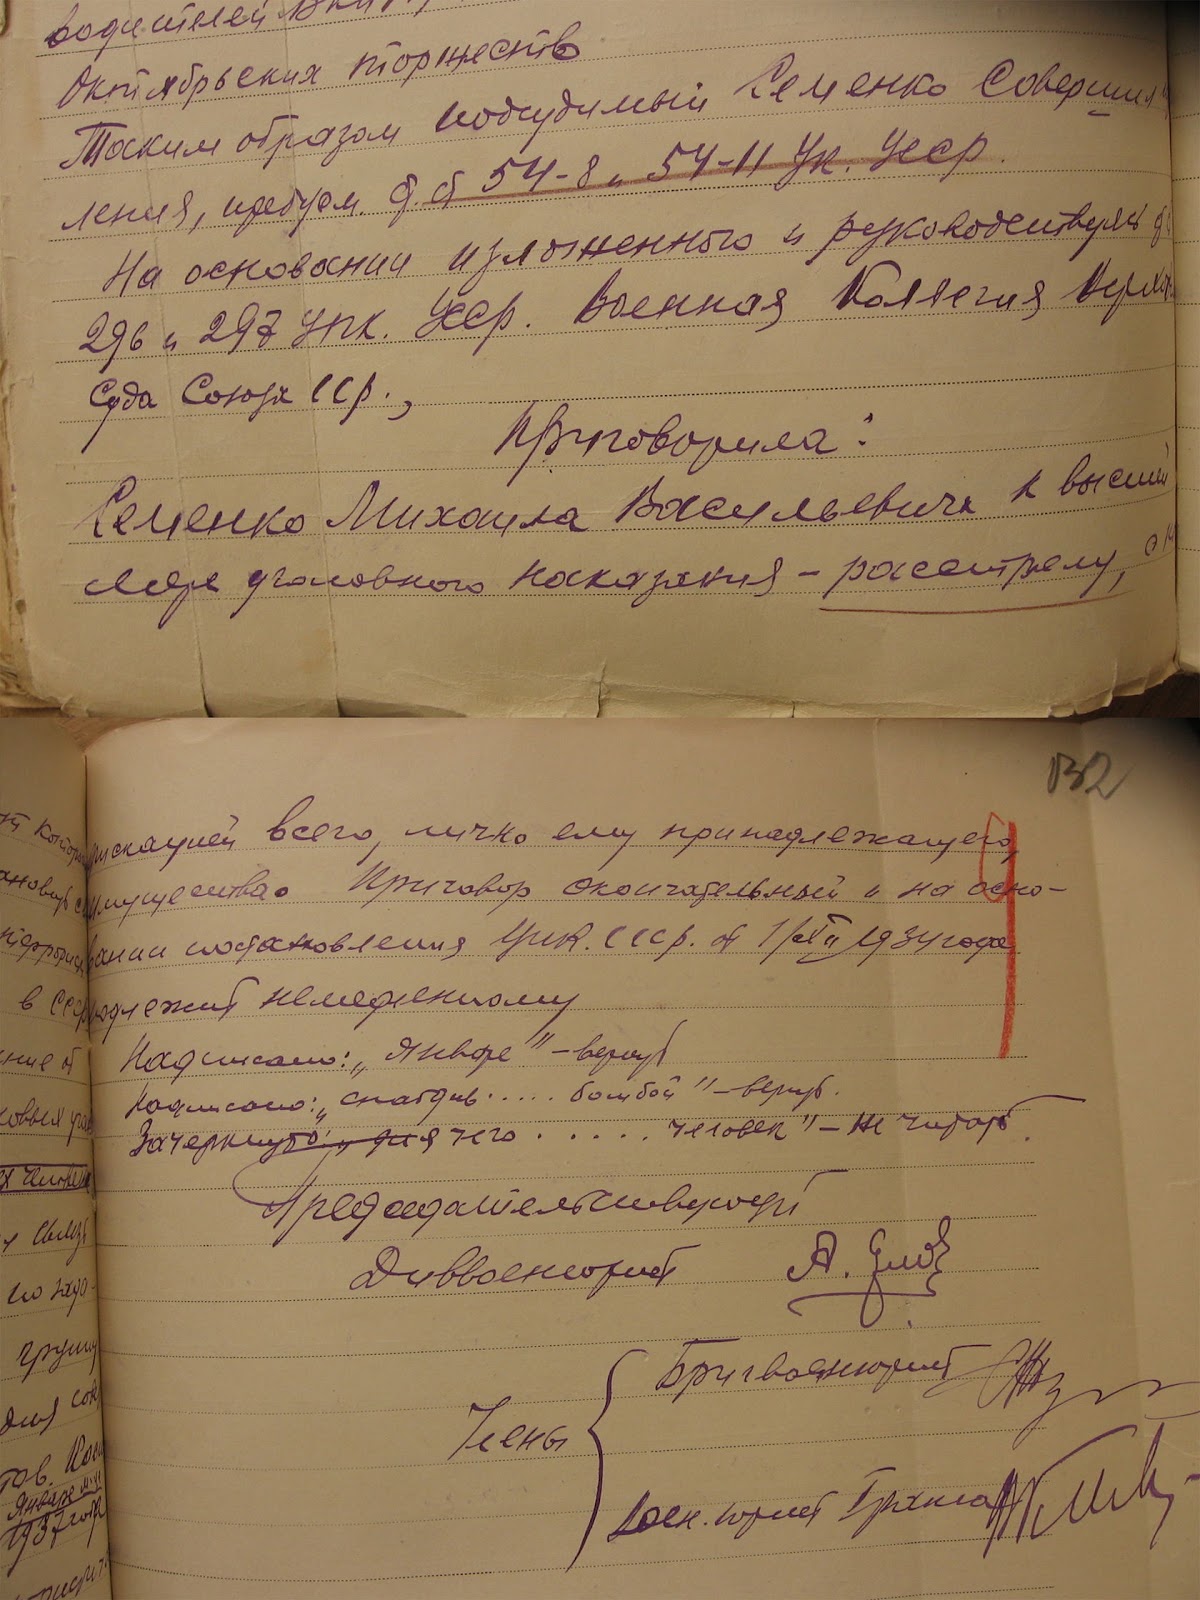 водителей
Октябрьских торжеств
Таким образом подсудимый Семенко Соверши
ления, предусм. ст. ст 54-8 и 54-11 Ук. Усср.
На основании изложенного и руководствуясь ст
296 и 297 упк. Усср. Военная Коллегия Верхов.
Суда Союза ССР.,
Приговорила:
Семенко Михаила Васильевича к высшей
мере уголовного наказания – расстрелу, с к
132
фискацией всего, лично ему принадлежащего,
имущества. Приговор окончательный и на осно-
вании постановления ЦИК. СССР. от 1/XII 1934 года
подлежит немедленному
Надписано: „Январе" – верить
Надписано: „ ..... бомбой" – верить.
Зачеркнуто: „для чего ...... человек" – не читать.
Председательствующий
Диввоенюрист А.
Члены
Бригвоенюрист
Воен. юрист I ранга
в СССР
ние от
ковых
х человек
и связь
по зада-
групп
для
тов. Кос
Январе м-це
1937 года